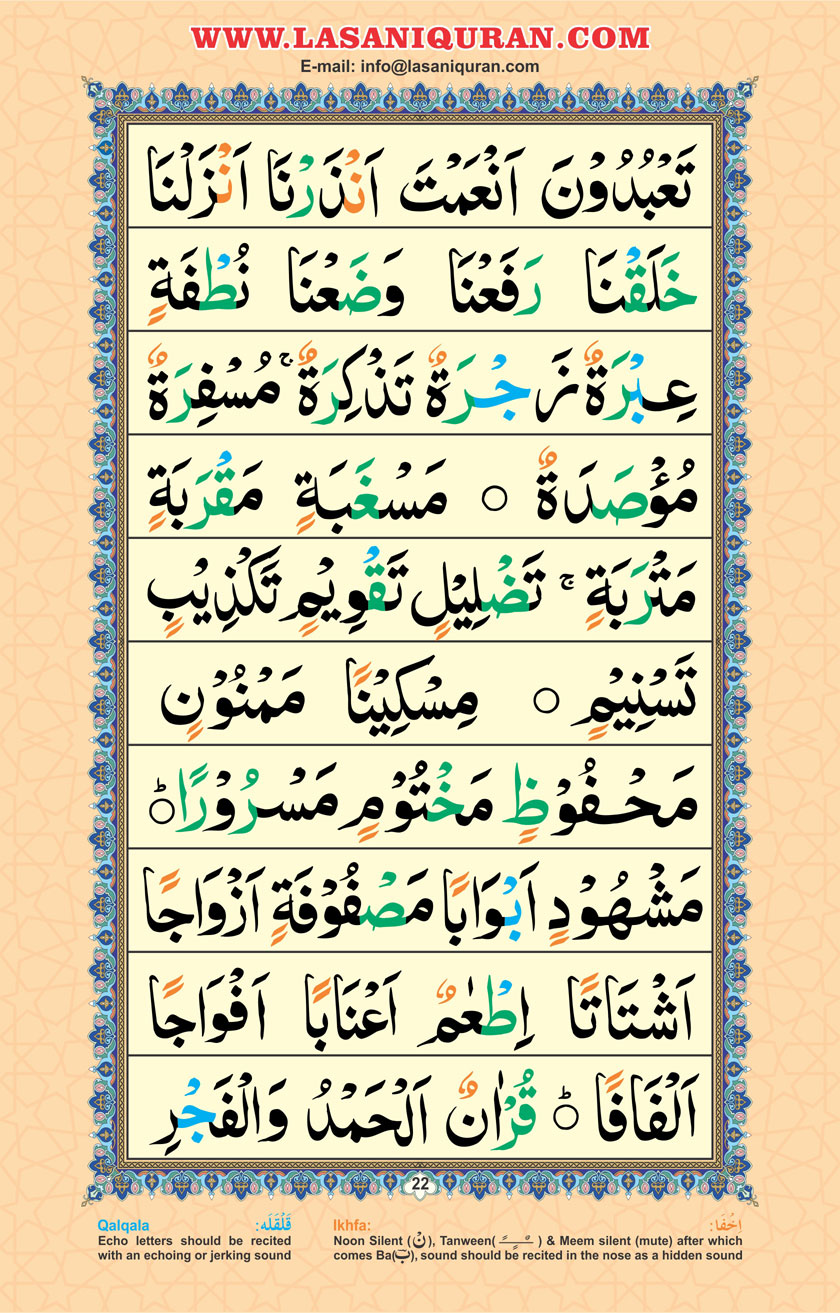 WWW.LASANIQURAN.COM
E-mail: info@lasaniquran.com
تَعْبُدُوْنَ اَنْعَمْتَ اَنْذَرْنَا اَنْزَلْنَا
خَلَقْنَا رَفَعْنَا وَضَعْنَا نُطْفَةٍ
عِبْرَةٌ زَجْرَةٌ تَذْكِرَةٌ ۚ مُسْفِرَةٌ
مُؤْصَدَةٌ ○ مَسْغَبَةٍ مَقْرَبَةٍ
مَتْرَبَةٍ ۚ تَضْلِيْلٍ تَقْوِيْمٍ تَكْذِيْبٍ
تَسْنِيْمٍ ○ مِسْكِيْنًا مَمْنُوْنٍ
مَحْفُوْظٍ مَخْتُوْمٍ مَسْرُوْرًا ○ؕ
مَشْهُوْدٍ اَبْوَابًا مَصْفُوْفَةٍ اَزْوَاجًا
اَشْتَاتًا اِطْعٰمٌ اَعْنَابًا اَفْوَاجًا
اَلْفَافًا ○ؕ قُرْاٰنٌ اَلْحَمْدُ وَالْفَجْرِ
22
Qalqala قَلْقَلَه:
Echo letters should be recited
with an echoing or jerking sound
Ikhfa: اِخْفَا:
Noon Silent (نْ), Tanween( ـًـٍـٌ ) & Meem silent (mute) after which
comes Ba(بَ), sound should be recited in the nose as a hidden sound